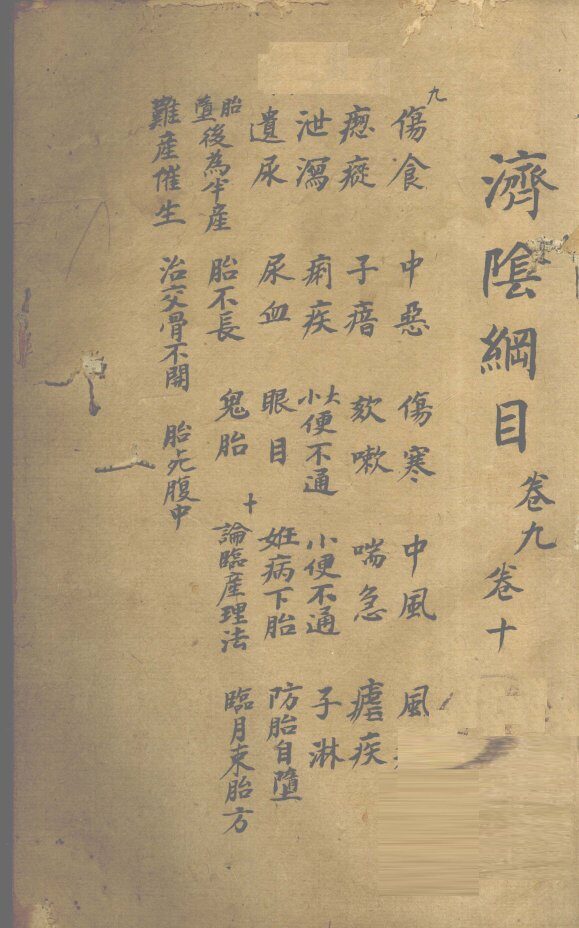 濟隂綱目 卷九 卷十
九 傷食 中惡 傷寒 中風 風
瘛瘲 子瘖 欬嗽 喘急 瘧疾
泄瀉 痢疾 大小便不通 小便不通 子淋
遺尿 尿血 眼目 妊病下胎 防胎自墮
胎墮後為半產 胎不長 鬼胎 十 論臨產理法 臨月束胎方
難產催生 治交骨不開 胎死腹中